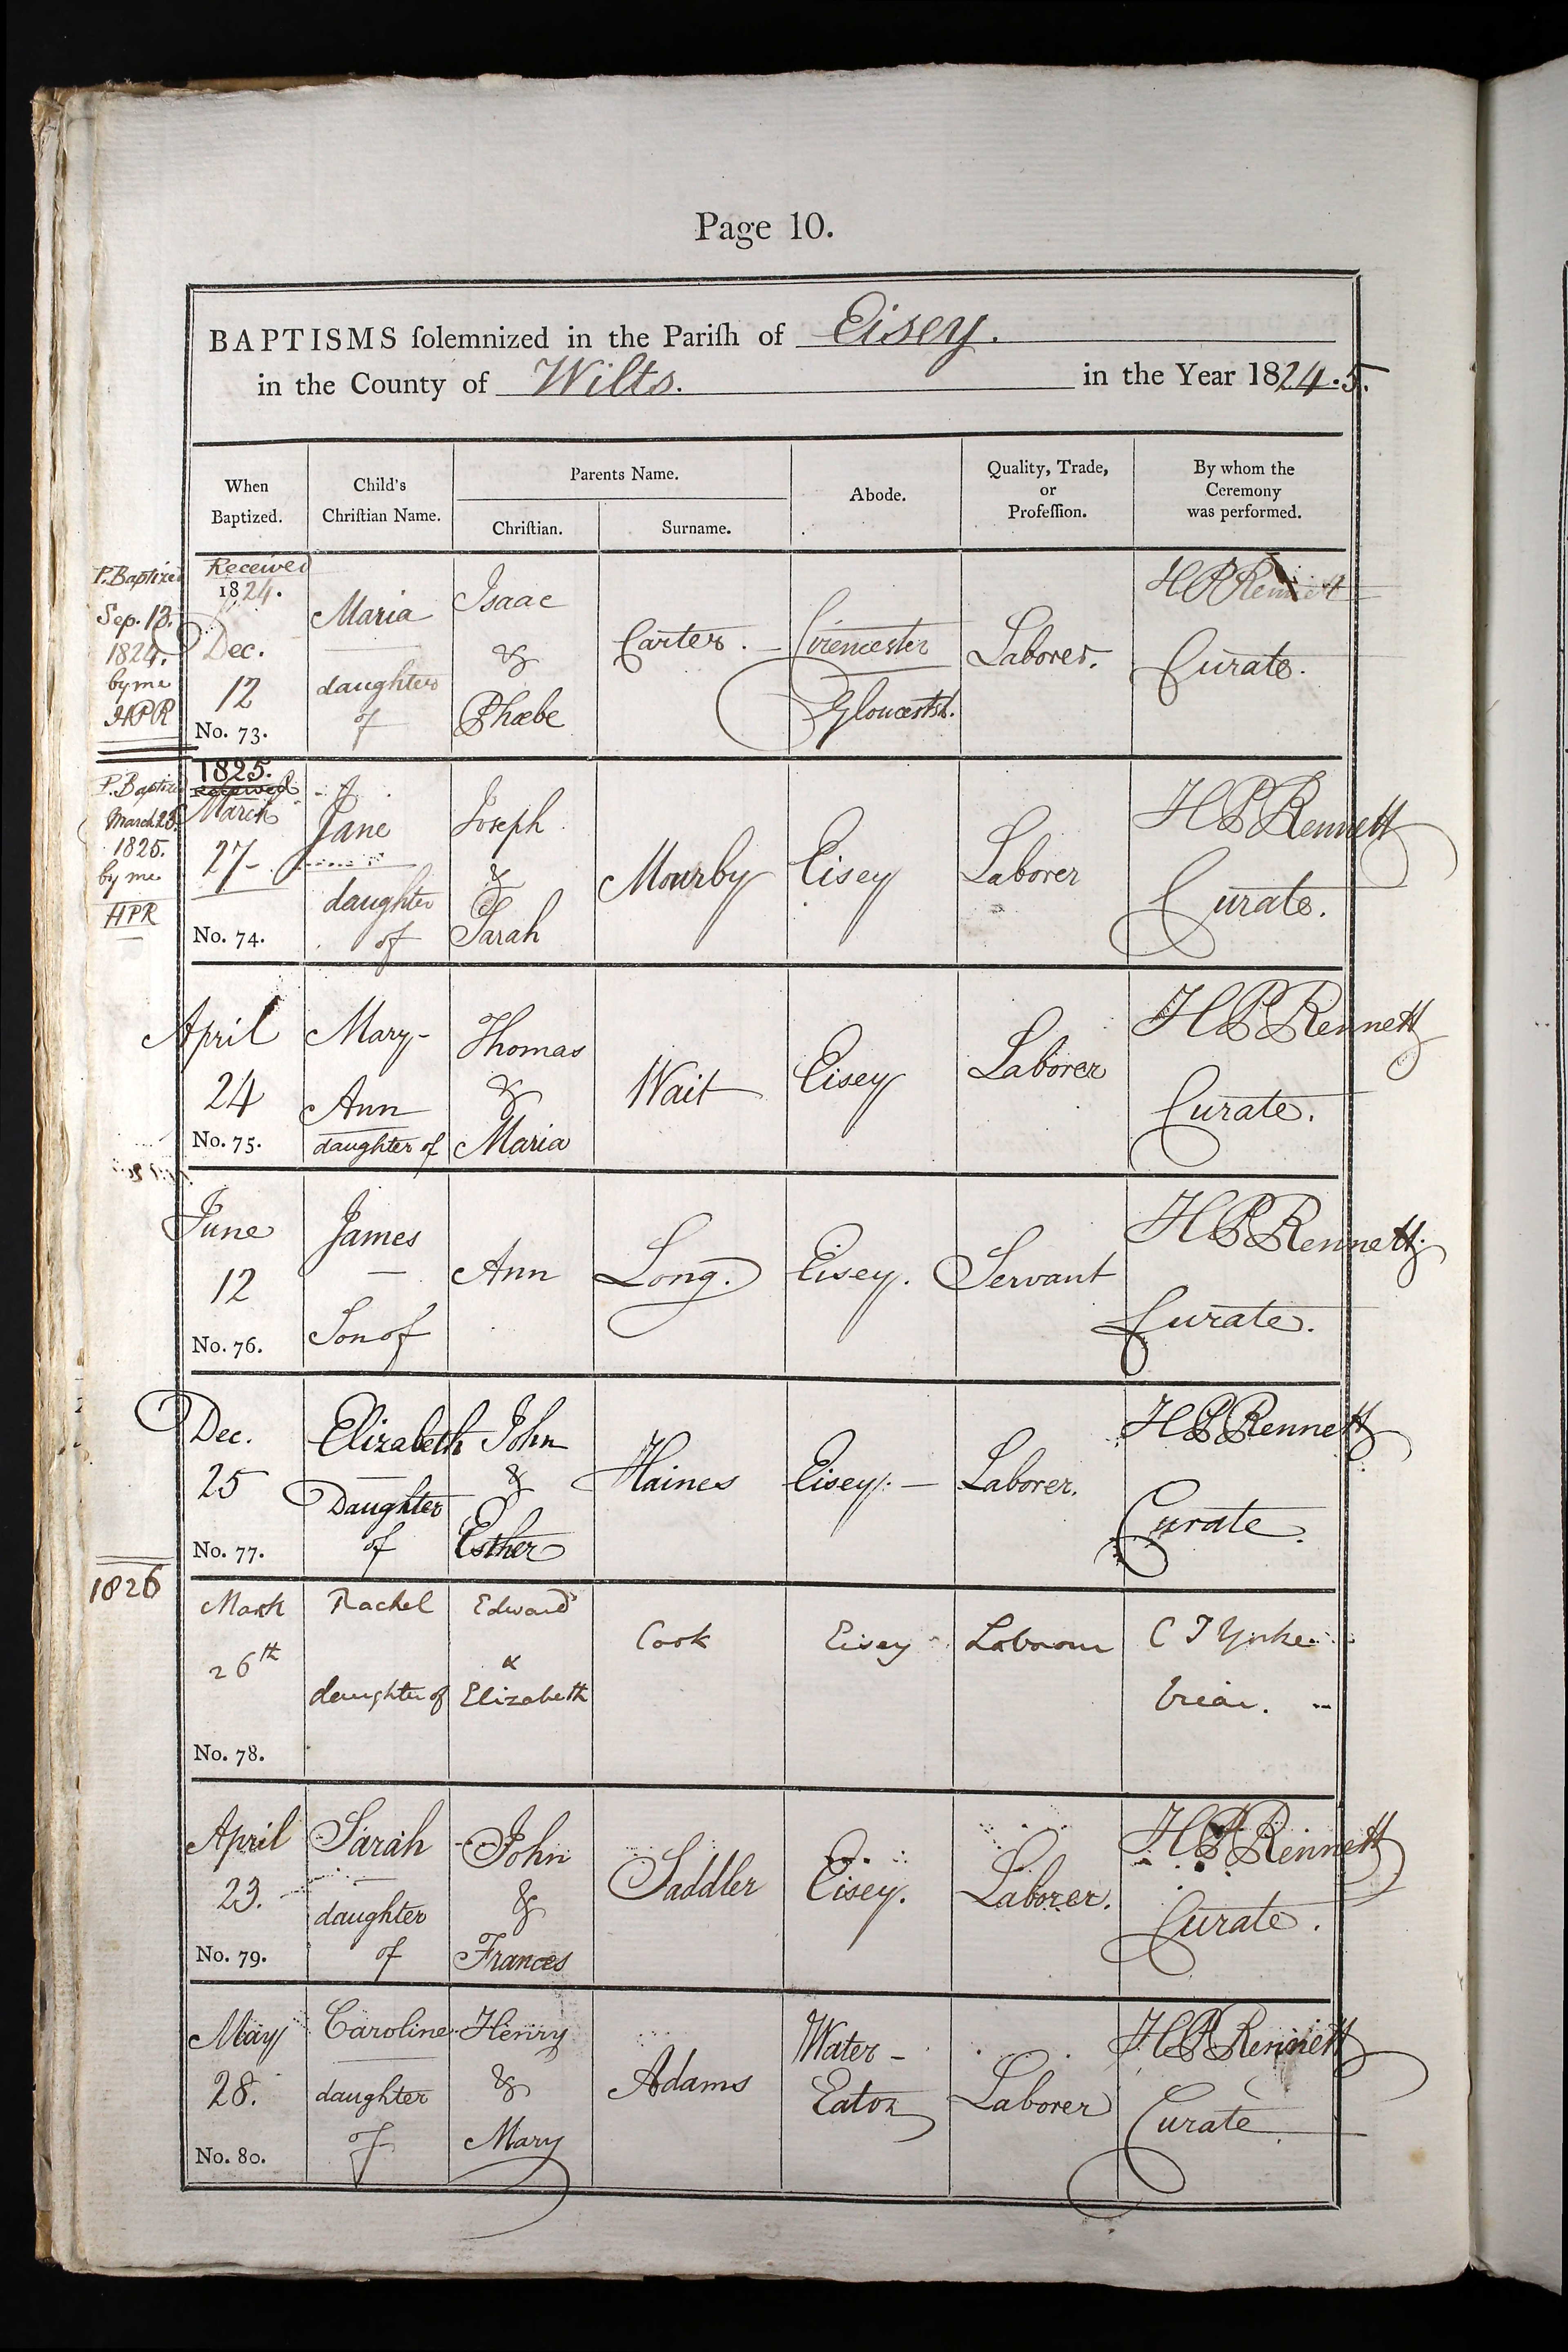 Page 10.
BAPTISMS ſolemnized in the Pariſh of Eisey.
in the County of Wilts. in the Year 1824.5.
When
Baptized.
Child's
Chriſtian Name.
Parents Name.
Chriſtian.
Surname.
Abode.
Quality, Trade,
or
Profeſſion.
By whom the
Ceremony
was performed.
P. Baptized
Sep. 13.
1824.
by me
HPR
Received
1824.
Dec.
12
No. 73.
Maria
daughter
of
Isaac
&
Phœbe
Carter.
Cirencester
Laborer.
HP Rennett
Curate.
P. Baptize
March
1825.
by me
HPR
1825.
Received
March
27
No. 74.
Jane
daughter
of
Joseph
&
Sarah
Mourby
Eisey
Laborer
HP Rennett
Curate.
April
24
No. 75.
Mary
Ann
daughter of
Thomas
&
Maria
Wait
Eisey
Laborer
HP Rennett
Curate.
June
12
No. 76.
James
Son of
Ann
Long.
Eisey.
Servant
HP Rennett
Curate.
Dec.
25
No. 77.
Elizabeth
Daughter
of
John
&
Esther
Haines
Eisey.
Laborer.
HP Rennett
Curate.
1826
March
26th
No. 78.
Rachel
daughter of
Edward
&
Elizabeth
Cook
Eisey
Labourer
C J Yorke
Vicar.
April
23.
No. 79.
Sarah
daughter
of
John
&
Frances
Saddler
Eisey.
Laborer.
HP Rennett
Curate.
May
28.
No. 80.
Caroline
daughter
of
Henry
&
Mary
Adams
Water-
Eaton
Laborer
HP Rennett
Curate